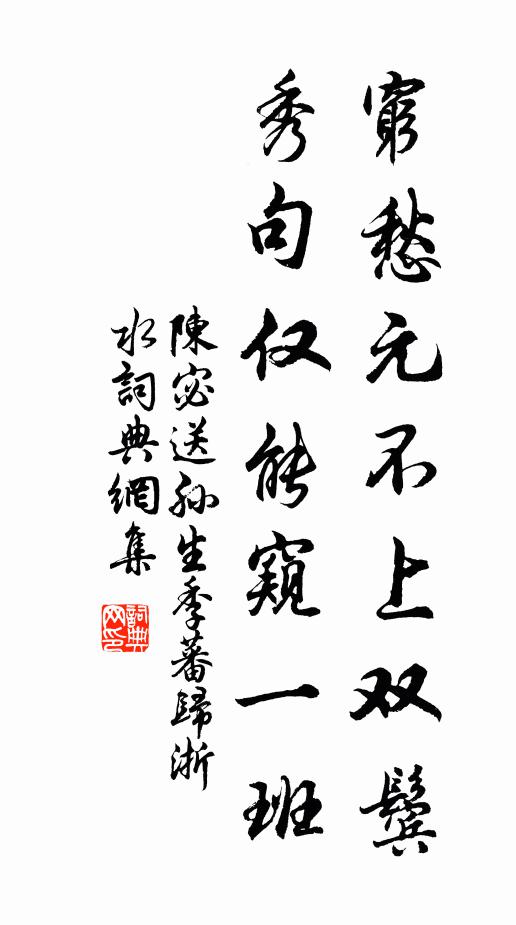 窮愁元不上双鬓
秀句仅能窺一班
陳宓送孙生季蕃歸浙
水詞典網集
詞典网印